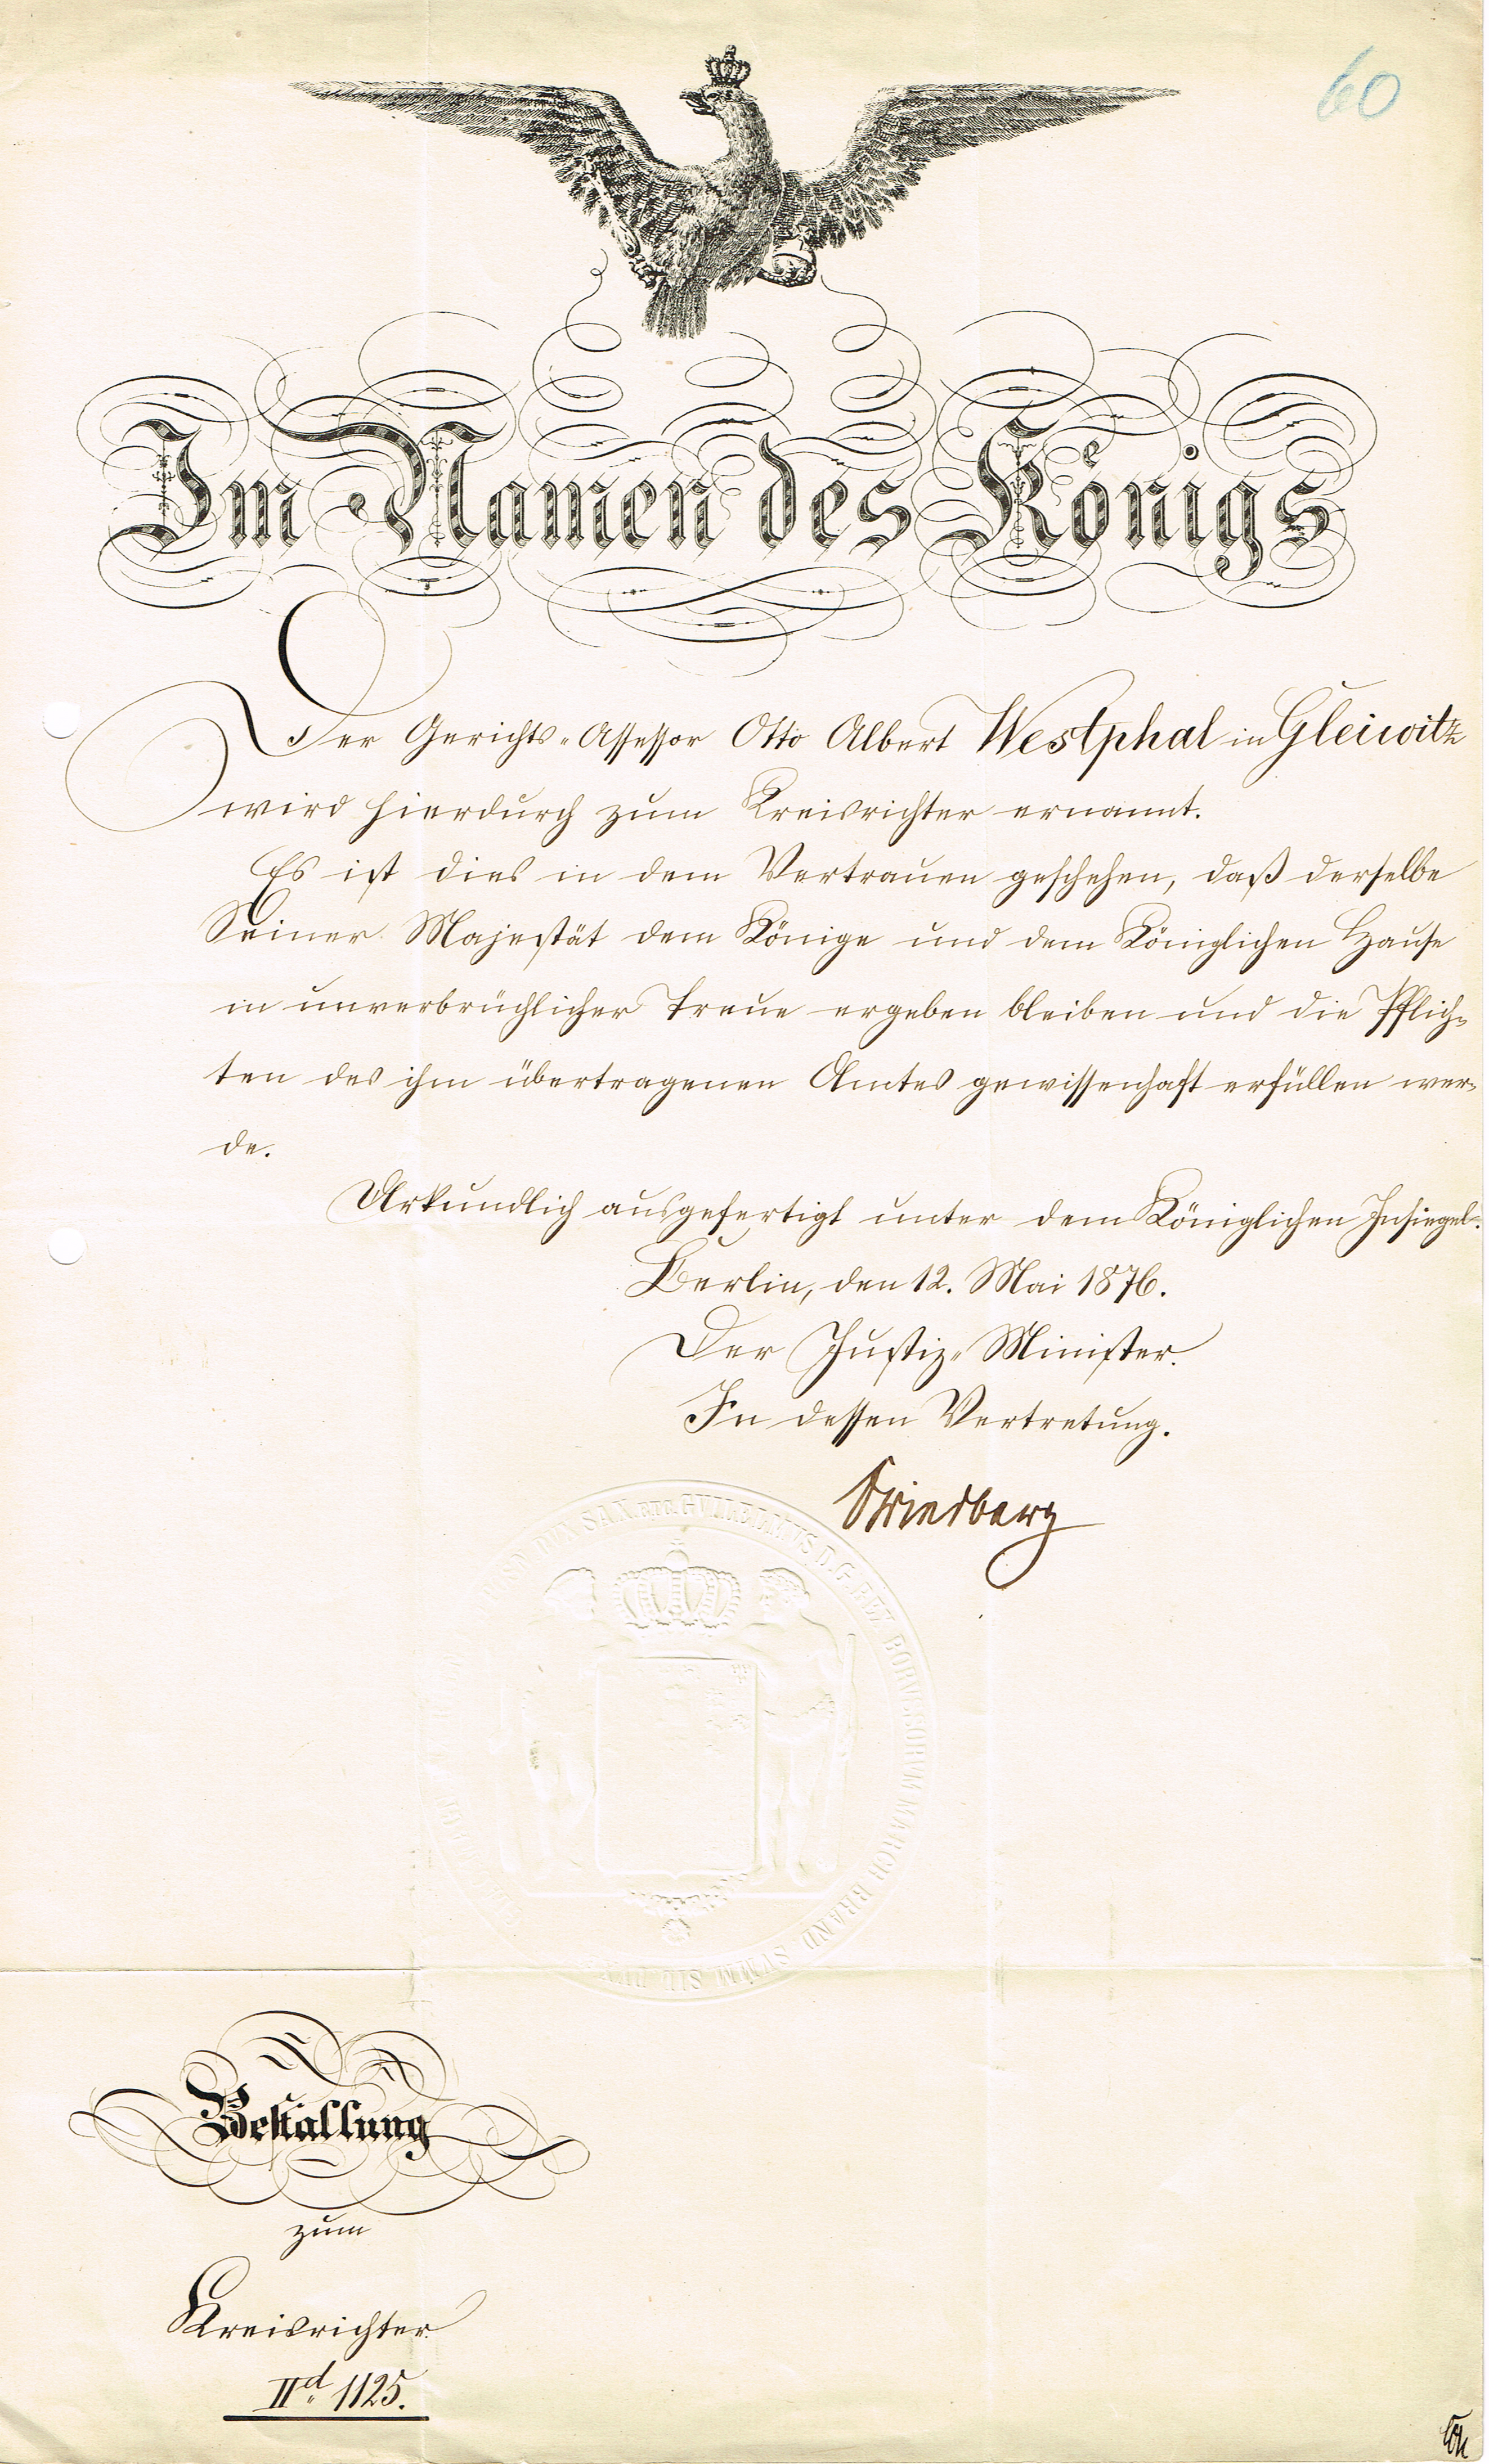 60
Im Namen des Königs
Der Gerichts-Assessor Otto Albert Westphal in Gleiwitz
wird hierdurch zum Kreisrichter ernannt.
Es ist dies in dem Vertrauen geschehen, daß derselbe
Seiner Majestät dem Könige und dem Königlichen Hause
in unverbrüchlicher Treue ergeben bleiben und die Pflich-
ten des ihm übertragenen Amtes gewissenhaft erfüllen wer-
de.
Urkundlich ausgefertigt unter dem Königlichen Insiegel.
Berlin, den 12. Mai 1876.
Der Justiz-Minister.
In dessen Vertretung.
Friedberg
SAX. ETC. GVILELMVS D. G. REX BORVSSORVM MARCH BRAND SVMM SIL DVX
Bestallung
zum
Kreisrichter
IId. 1125.